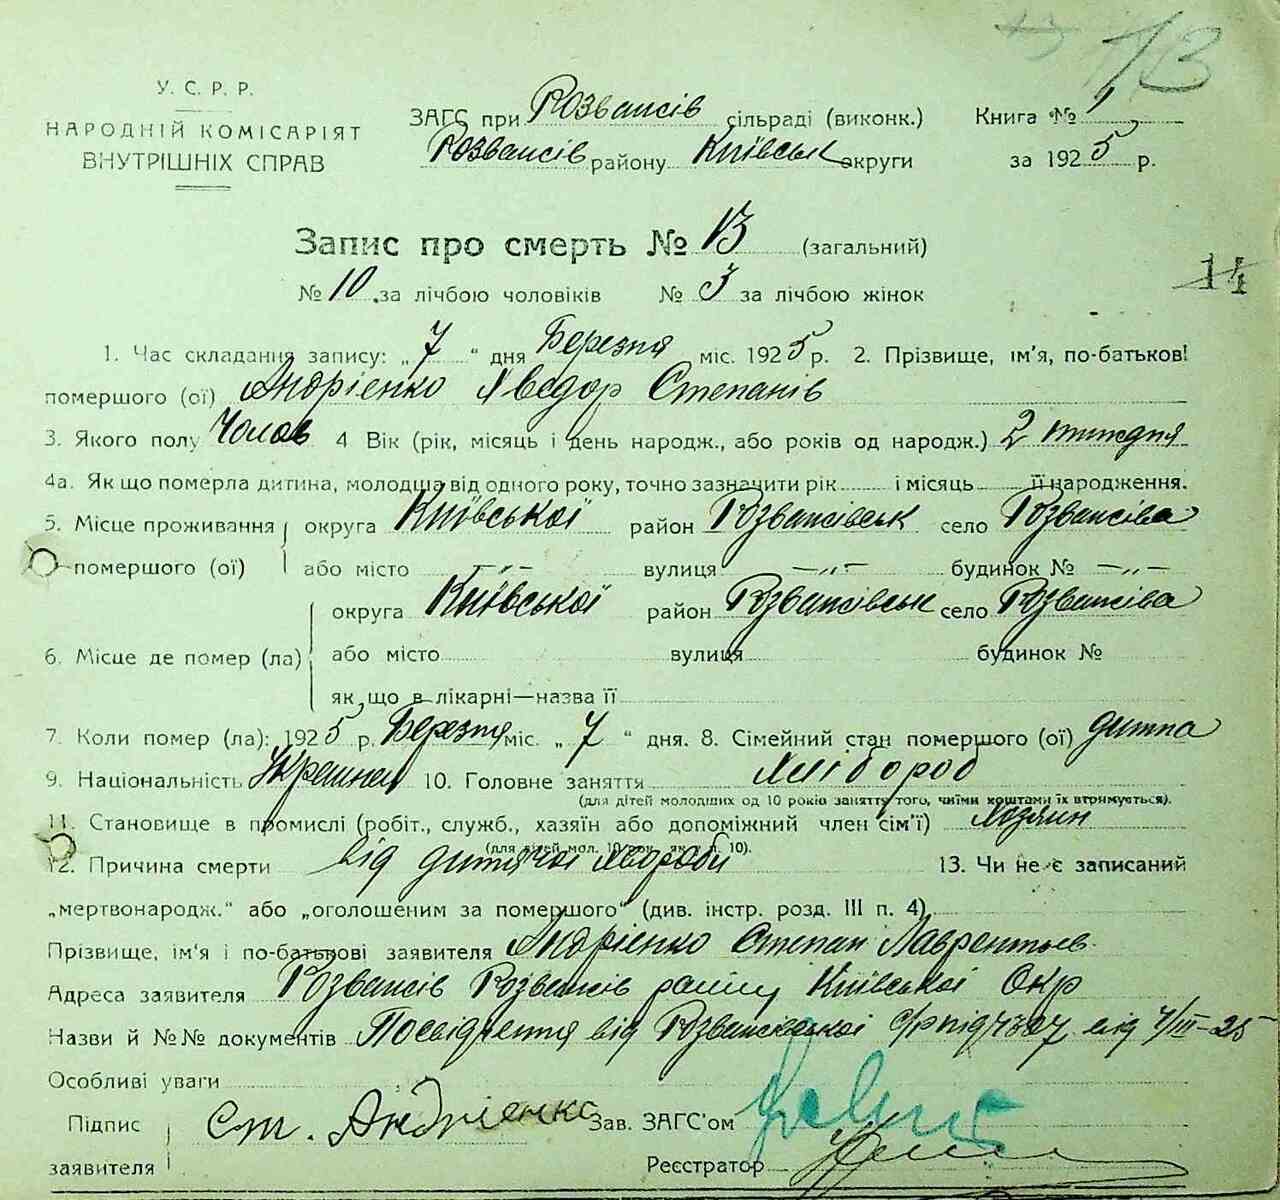 13
У. С. Р. Р.
НАРОДНІЙ КОМІСАРІЯТ
ВНУТРІШНІХ СПРАВ
ЗАГС при Розважів сільраді (виконк.) Книга № 1
Розважів району Київськ округи за 1925 р.
Запис про смерть № 13 (загальний)
14
№ 10 за лічбою чоловіків № 3 за лічбою жінок
1. Час складання запису: „ 7 “ дня Березня міс. 1925 р. 2. Прізвище, ім'я, по-батькові
помершого (ої) Андрієнко Хведор Степанів
3. Якого полу Чолов 4 Вік (рік, місяць і день народж., або років од народж.) 2 тиждня
4а. Як що померла дитина, молодша від одного року, точно зазначити рік і місяць її народження.
5. Місце проживання округа Київської район Розважівськ село Розважіва
помершого (ої) або місто —„— вулиця —„— будинок № —„—
округа Київської район Розважівськ село Розважіва
6. Місце де помер (ла) або місто вулиця будинок №
як що в лікарні—назва її
7. Коли помер (ла): 1925 р. Березня міс. „ 7 “ дня. 8. Сімейний стан помершого (ої) дитина
9. Національність 10. Головне заняття Хлібороб
(для дітей молодших од 10 років заняття того, чиїми коштами їх втримується).
11. Становище в промислі (робіт., служб., хазяїн або допоміжний член сім'ї) Хозяин
(для дітей мол. 10 рок. як п. 10).
12. Причина смерти від дитячої хвороби 13. Чи не є записаний
„мертвонародж.“ або „оголошеним за помершого“ (див. інстр. розд. III п. 4)
Прізвище, ім'я і по-батькові заявителя Андрієнко Степан Лаврентьев
Адреса заявителя Розважів Розважів району Київської Окр
Назви й №№ документів Посвідчення від Розважівської с/р під від 7/III-25
Особливі уваги
Підпис Ст. Андрієнко Зав. ЗАГС'ом
заявителя Реєстратор